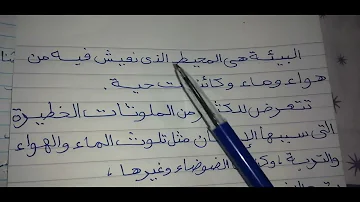 البيئة هى المحيط الذى نعيش فيه من
هواء وماء وكائنات حية.
تتعرض للكثير من الملوثات الخطيرة
التى سببها الإنسان مثل تلوث الماء والهواء
والتربة، وكذلك الضوضاء وغيرها،